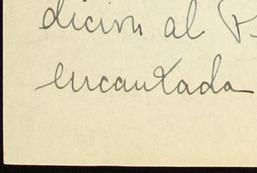 dicion al
encantada